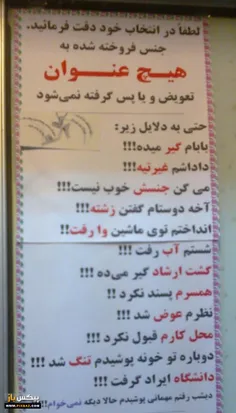 لطفاً در انتخاب خود دقت فرمائید.
جنس فروخته شده به
هیچ عنوان
تعویض و یا پس گرفته نمی‌شود
حتی به دلایل زیر:
بابام گیر میده!!!
داداشم غیرتیه!!!
می گن جنسش خوب نیست!!!
آخه دوستام گفتن زشته!!!
انداختم توی ماشین وا رفت!!
شستم آب رفت !!!
گشت ارشاد گیر می‌ده !!!
همسرم پسند نکرد !!
نظرم عوض شد !!!
محل کارم قبول نکرد !!
دوباره تو خونه پوشیدم تنگ شد !!!
دانشگاه ایراد گرفت !!!
دیشب رفتم مهمانی پوشیدم حالا دیگه نمی‌خوام!!!
پیکس باز